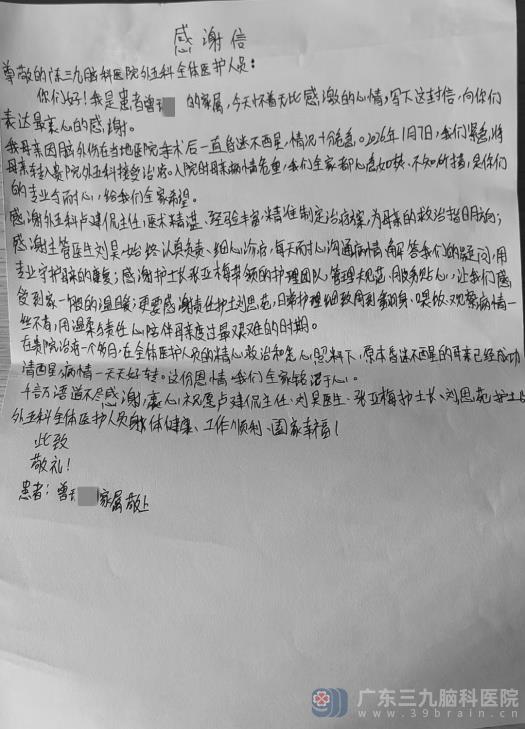 感谢信
尊敬的陈三九脑科医院外五科全体医护人员：
你们好！我是患者曾 的家属，今天怀着无比感激的心情，写下这封信，向你们
表达最衷心的感谢。
我母亲因脑外伤在当地医院手术后一直昏迷不醒，情况十分危急。2026年1月7日，我们紧急将
母亲转入贵院外五科接受治疗。入院时母亲病情危重，我们全家都心急如焚、不知所措，是你们
的专业与耐心，给我们全家希望。
感谢外五科卢建侃主任，医术精湛、经验丰富，精准制定治疗方案，为母亲的救治指明方向；
感谢主管医生刘昊，始终认真负责、细心诊治，每天耐心沟通病情，解答我们的疑问，用
专业守护母亲的康复；感谢护士长张亚梅带领的护理团队，管理规范，服务贴心，让我们感
受到家一般的温暖；更要感谢责任护士刘恩苑，日常护理细致周到，翻身、喂饭、观察病情一
丝不苟，用温柔与责任心陪伴母亲度过最艰难的时期。
在贵院治疗一个多月，在全体医护人员的精心救治和悉心照料下，原本昏迷不醒的母亲已经成功
清醒，病情一天天好转。这份恩情，我们全家铭记于心。
千言万语道不尽感谢，衷心祝愿卢建侃主任、刘昊医生、张亚梅护士长、刘恩苑护士及
外五科全体医护人员身体健康、工作顺利、阖家幸福！
此致
敬礼！
患者：曾 家属敬上
广东三九脑科医院
www.39brain.cn